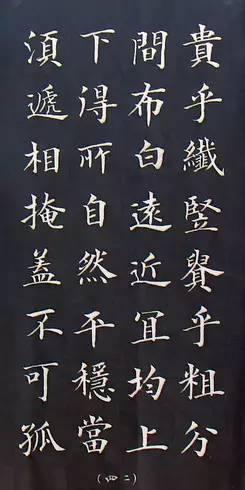 貴乎纖竪貴乎粗分
間布白遠近冝均上
下得所自然平穩當
湏遞相掩蓋不可孤
(二四)